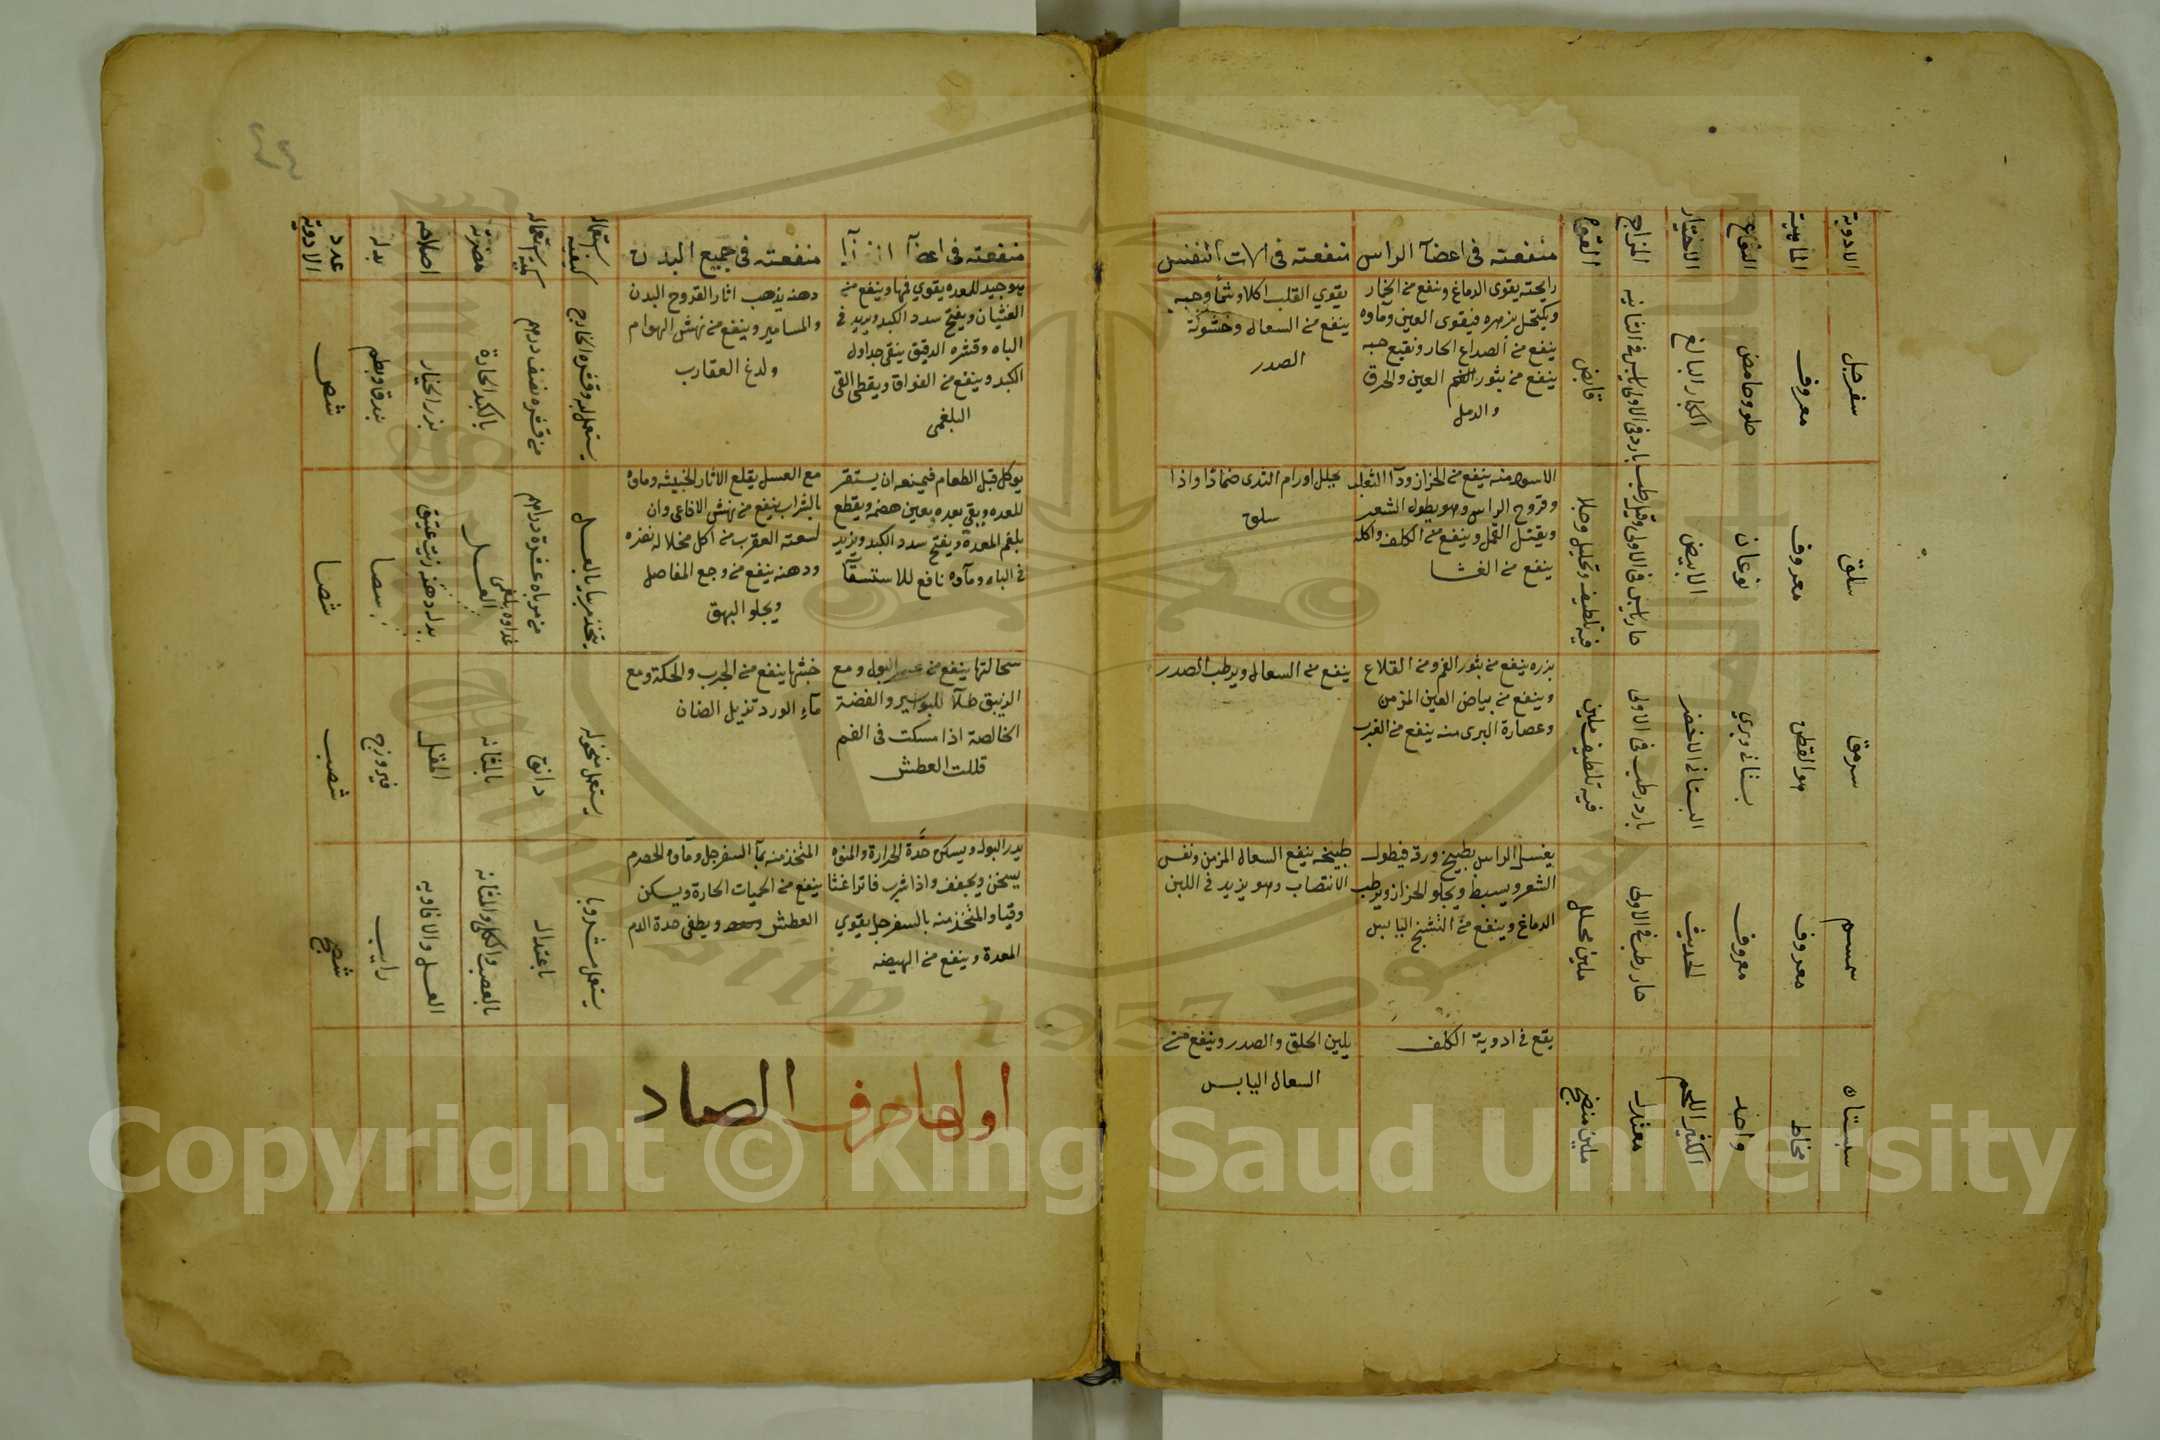 الادوية
الماهية
النوع
الاختيار
المزاج
القوة
منفعته فى اعضآ الراس
منفعته فى الات النفس
سفرجل
معروف
حلو وحامض
الكبار البالغ
بارد فى الاولى يابس فى الثانيه
قابض
رايحته يقوى الدماغ وينفع من الخمار
ويكتحل بزهره فيقوى العين وماوه
ينفع من الصداع الحار ونقيع حبه
ينفع من بثور الفم العين والحرق
والدمل
يقوي القلب اكلا وشما وحبه
ينفع من السعال وخشونة
الصدر
سلق
معروف
نوعان
الابيض
حار يابس فى الاولى وقيل رطب
فيه تلطيف وتحليل وجلا
الاسود منه ينفع من الحزاز ودآ الثعلب
وقروح الراس وهو يطول الشعر
ويقتل القمل وينفع من الكلف واكله
ينفع من الغشا
يحلل اورام الثدى ضمادا واذا
سلق
سرمق
هو القطن
بستانى وبري
البستانى الاخضر
بارد رطب فى الاولى
فيه تلطيف وتليين
بزره ينفع من بثور الفم ومن القلاع
وينفع من بياض العين المزمن
وعصارة البرى منه ينفع من الغرب
ينفع من السعال ويرطب الصدر
سمسم
معروف
معروف
الحديث
حار رطب فى الاولى
ملين محلل
يغسل الراس بطبيخ ورقه فيطول
الشعر ويبسط ويجلو الحزاز ويرطب
الدماغ وينفع من التشنج اليابس
طبيخه ينفع السعال المزمن ونفس
الانتصاب وهو يزيد فى اللبن
سبستان
مخاط
واحد
الكثير اللحم
معتدل
ملين منضج
يقع فى ادوية الكلف
يلين الحلق والصدر وينفع من
السعال اليابس
منفعته فى اعضآ الغذآ
منفعته فى جميع البدن
كيفية استعماله
كمية استعماله
مضرته
اصلاحه
بدله
عدد الادوية
هو جيد للمعده يقوي فمها وينفع من
الغثيان ويفتح سدد الكبد ويزيد فى
الباه وقشره الدقيق ينقى جداول
الكبد وينفع من الفواق ويقطع القى
البلغمى
دهنه يذهب اثار القروح البدن
والمسامير وينفع من نهش الهوام
ولدغ العقارب
يستعمل لبه وقشره الخارج
من قشره نصف درهم
بالكبد الحارة
بزر الخيار
بندق وبطم
شص
يوكل قبل الطعام فيمنعه ان يستقر
للمعده وبقى بعده يعين هضمه ويقطع
بلغم المعدة ويفتح سدد الكبد ويزيد
فى الباه ومآوه نافع للاستسقآ
مع العسل يقلع الاثار الخبيثه وماوه
بالشراب ينفع من نهش الافاعى وان
لسعته العقرب من اكل مخلاله نضره
ودهنه ينفع من وجع المفاصل
ويجلو البهق
يتخذ مربا بالعسل
من مرباه عشرة دراهم
غذاوه بلغمى
العسل
بدل دهنه زيت عتيق
شصا
سحالتها ينفع من عسر البول ومع
الزيبق طلآ للبواسير والفضة
الخالصة اذا مسكت فى الفم
قللت العطش
خبثها ينفع من الجرب والحكة ومع
مآء الورد تزيل الصنان
يستعمل منخوله
دانق
بالمثانه
المقل
فيروزج
شصب
يدر البول ويسكن حدة الحرارة والمنوه
يسخن ويجفف واذا شرب فاترا غثا
وقيا والمتخذ منه بالسفرجل يقوي
المعدة وينفع من الهيضه
المتخذ منه بمآ السفرجل ومآوه الحصرم
ينفع من الحميات الحارة ويسكن
العطش ويطفى حدة الدم
يستعمل مشروبا
باعتدال
بالعصب والكلى والمثانه
العسل والافاويه
رايب
شصج
اولها حرف الصاد
Copyright © King Saud University
1957